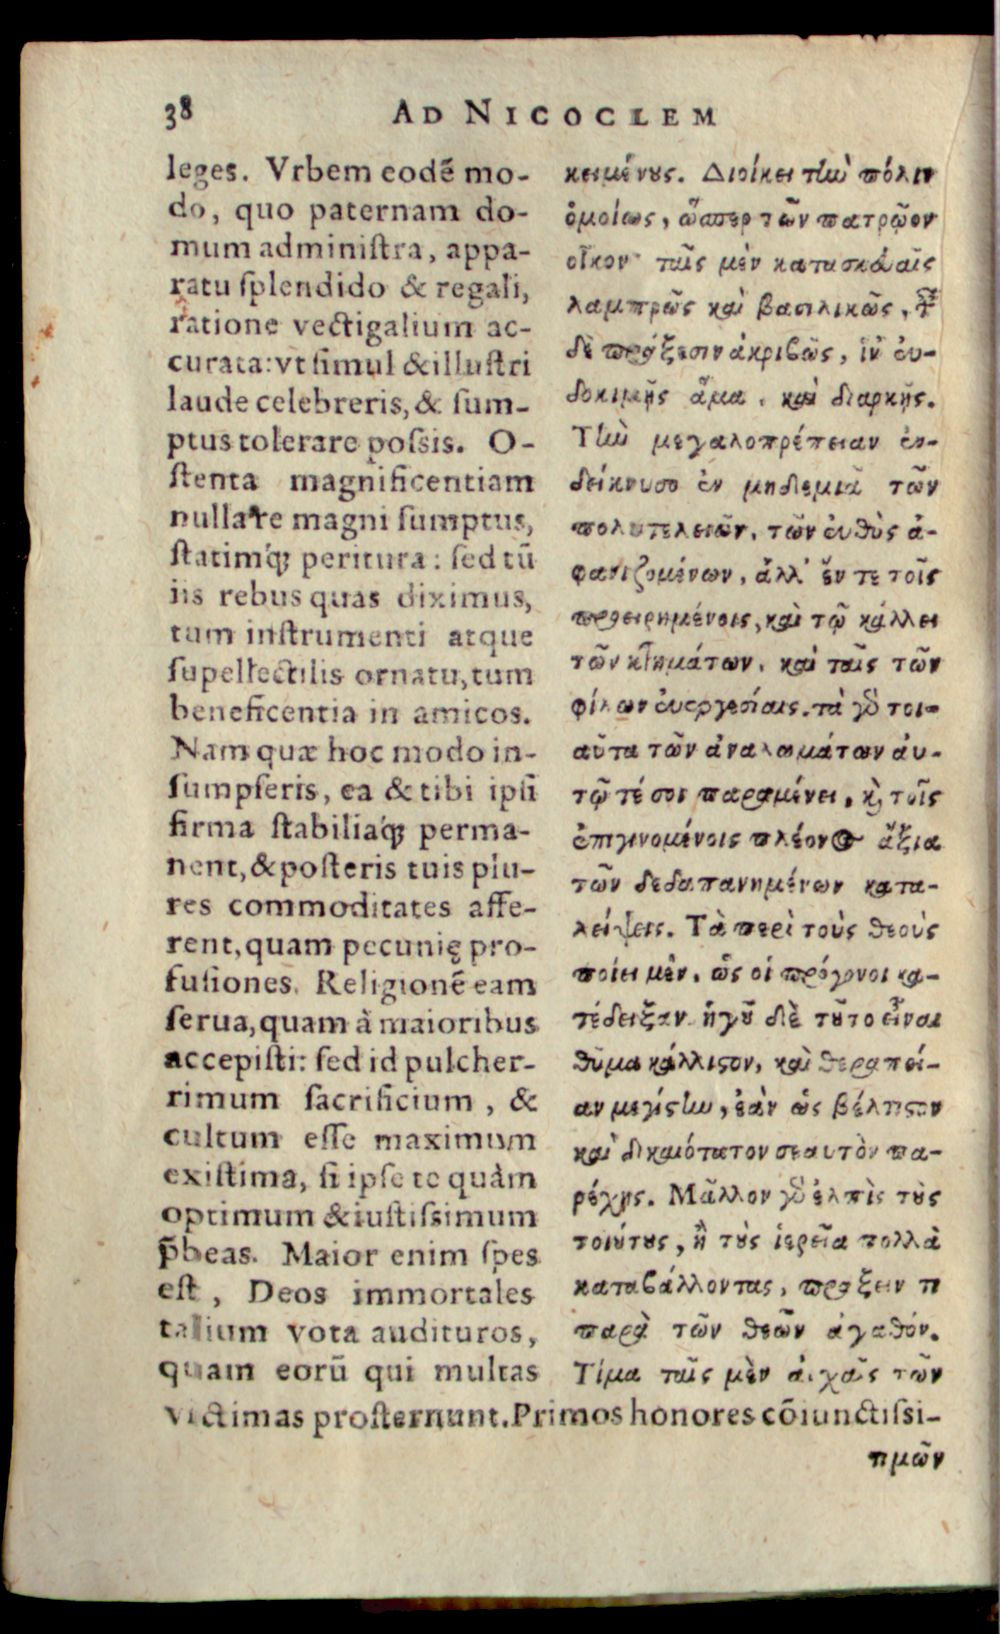 38 AD NICOCLEM
leges. Vrbem eodē mo-
do, quo paternam do-
mum adminiſtra, appa-
ratu ſplendido & regali,
ratione vectigalium ac-
curata: vt ſimul & illuſtri
laude celebreris, & ſum-
ptus tolerare poſsis. O-
ſtenta magnificentiam
nulla re magni ſumptus,
ſtatimq́; peritura: ſed tū
iis rebus quas diximus,
tum inſtrumenti atque
ſupellectilis ornatu, tum
beneficentia in amicos.
Nam quæ hoc modo in-
ſumpſeris, ea & tibi ipſi
firma ſtabiliaq́; perma-
nent, & poſteris tuis plu-
res commoditates affe-
rent, quam pecunię pro-
fuſiones. Religionē eam
ſerua, quam à maioribus
accepiſti: ſed id pulcher-
rimum ſacrificium, &
cultum eſſe maximum
exiſtima, ſi ipſe te quàm
optimum & iuſtiſsimum
p̄beas. Maior enim ſpes
eſt, Deos immortales
talium vota audituros,
quam eorū qui multas
victimas proſternunt. Primos honores cōiunctiſsi-
κειμένους. Διοίκει τὴν πόλιν
ὁμοίως, ὥσπερ τῶν πατρῷον
οἶκον· ταῖς μὲν κατασκευαῖς
λαμπρῶς καὶ βασιλικῶς,
δὲ πράξεσιν ἀκριβῶς, ἵν' εὐ-
δοκιμῇς ἅμα, καὶ διαρκῇς.
Τὴν μεγαλοπρέπειαν ἐν-
δείκνυσο ἐν μηδεμιᾷ τῶν
πολυτελειῶν, τῶν εὐθὺς ἀ-
φανιζομένων, ἀλλ' ἔν τε τοῖς
προειρημένοις, καὶ τῷ κάλλει
τῶν κτημάτων, καὶ ταῖς τῶν
φίλων εὐεργεσίαις. τὰ γὸ τοι-
αῦτα τῶν ἀναλωμάτων αὐ-
τῷ τέ σοι παραμένει, καὶ τοῖς
ἐπιγινομένοις πλέονος ἄξια
τῶν δεδαπανημένων κατα-
λείψεις. Τὰ περὶ τοὺς θεοὺς
ποίει μὲν, ὡς οἱ πρόγονοι κα-
τέδειξαν ἡγοῦ δὲ τοῦτο εἶναι
θῦμα κάλλιστον, καὶ θεραπεί-
αν μεγίστην, ἐὰν ὡς βέλτιστον
καὶ δικαιότατον σεαυτὸν πα-
ρέχῃς. Μᾶλλον γὸ ἐλπὶς τοὺς
τοιούτους, ἢ τοὺς ἱερεῖα πολλὰ
καταβάλλοντας, πράξειν τι
παρὰ τῶν θεῶν ἀγαθόν.
Τίμα ταῖς μὲν ἀρχαῖς τῶν
τιμῶν